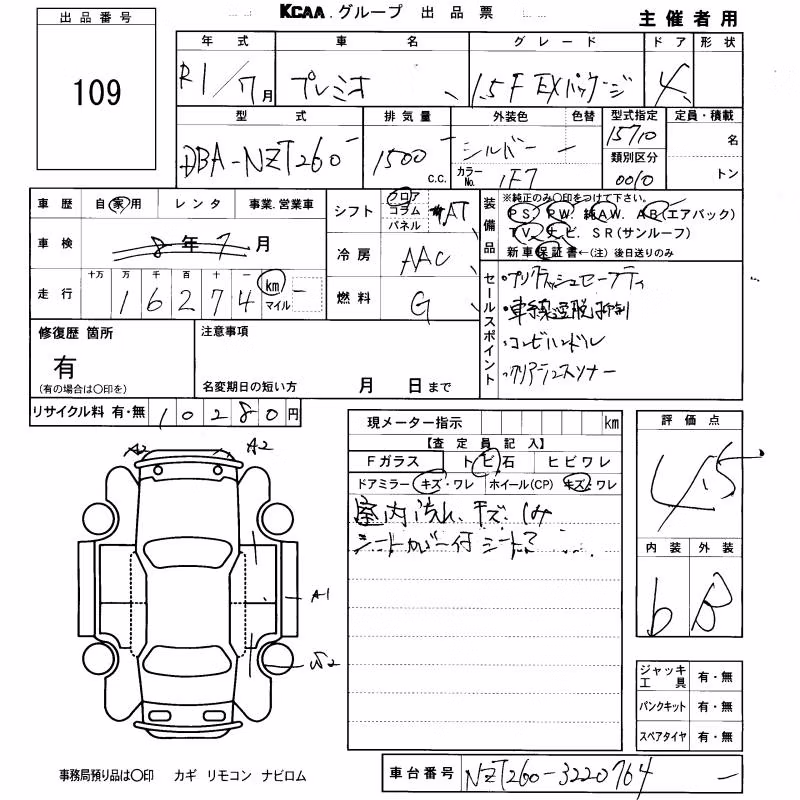 KCAA.グループ 出品票
主催者用
出品番号
109
年式 車名 グレード ドア 形状
R1/7月 プレミオ 1.5F EXパッケージ 4
型式 排気量 外装色 色替 型式指定 定員・積載
DBA-NZT260 1500 c.c. シルバー 15710 名
カラーNo. 1F7 類別区分 0010 トン
車歴 自家用 レンタ 事業.営業車
シフト フロア コラム パネル AT
装備品 ※純正のみ○印をつけて下さい。
PS. PW. 純AW. AB(エアバック)
TV. ナビ. SR(サンルーフ)
新車保証書←(注)後日送りのみ
車検 8年7月
冷房 AAC
走行 十万 万 千 百 十 一
16274 km マイル
燃料 G
セールスポイント
・プリクラッシュセーフティ
・車線逸脱抑制
・コンビハンドル
・クリアランスソナー
修復歴箇所
有
(有の場合は○印を)
注意事項
名変期日の短い方 月 日まで
リサイクル料 有・無 10280円
現メーター指示 km
【査定員記入】
Fガラス トビ石 ヒビワレ
ドアミラー キズ・ワレ ホイール(CP) キズ・ワレ
室内汚れ、キズ、しみ
シートカバー付
評価点
4.5
内装 外装
b B
A2 A2
A1
ジャッキ工具 有・無
パンクキット 有・無
スペアタイヤ 有・無
事務局預り品は○印 カギ リモコン ナビロム
車台番号 NZT260-3220764